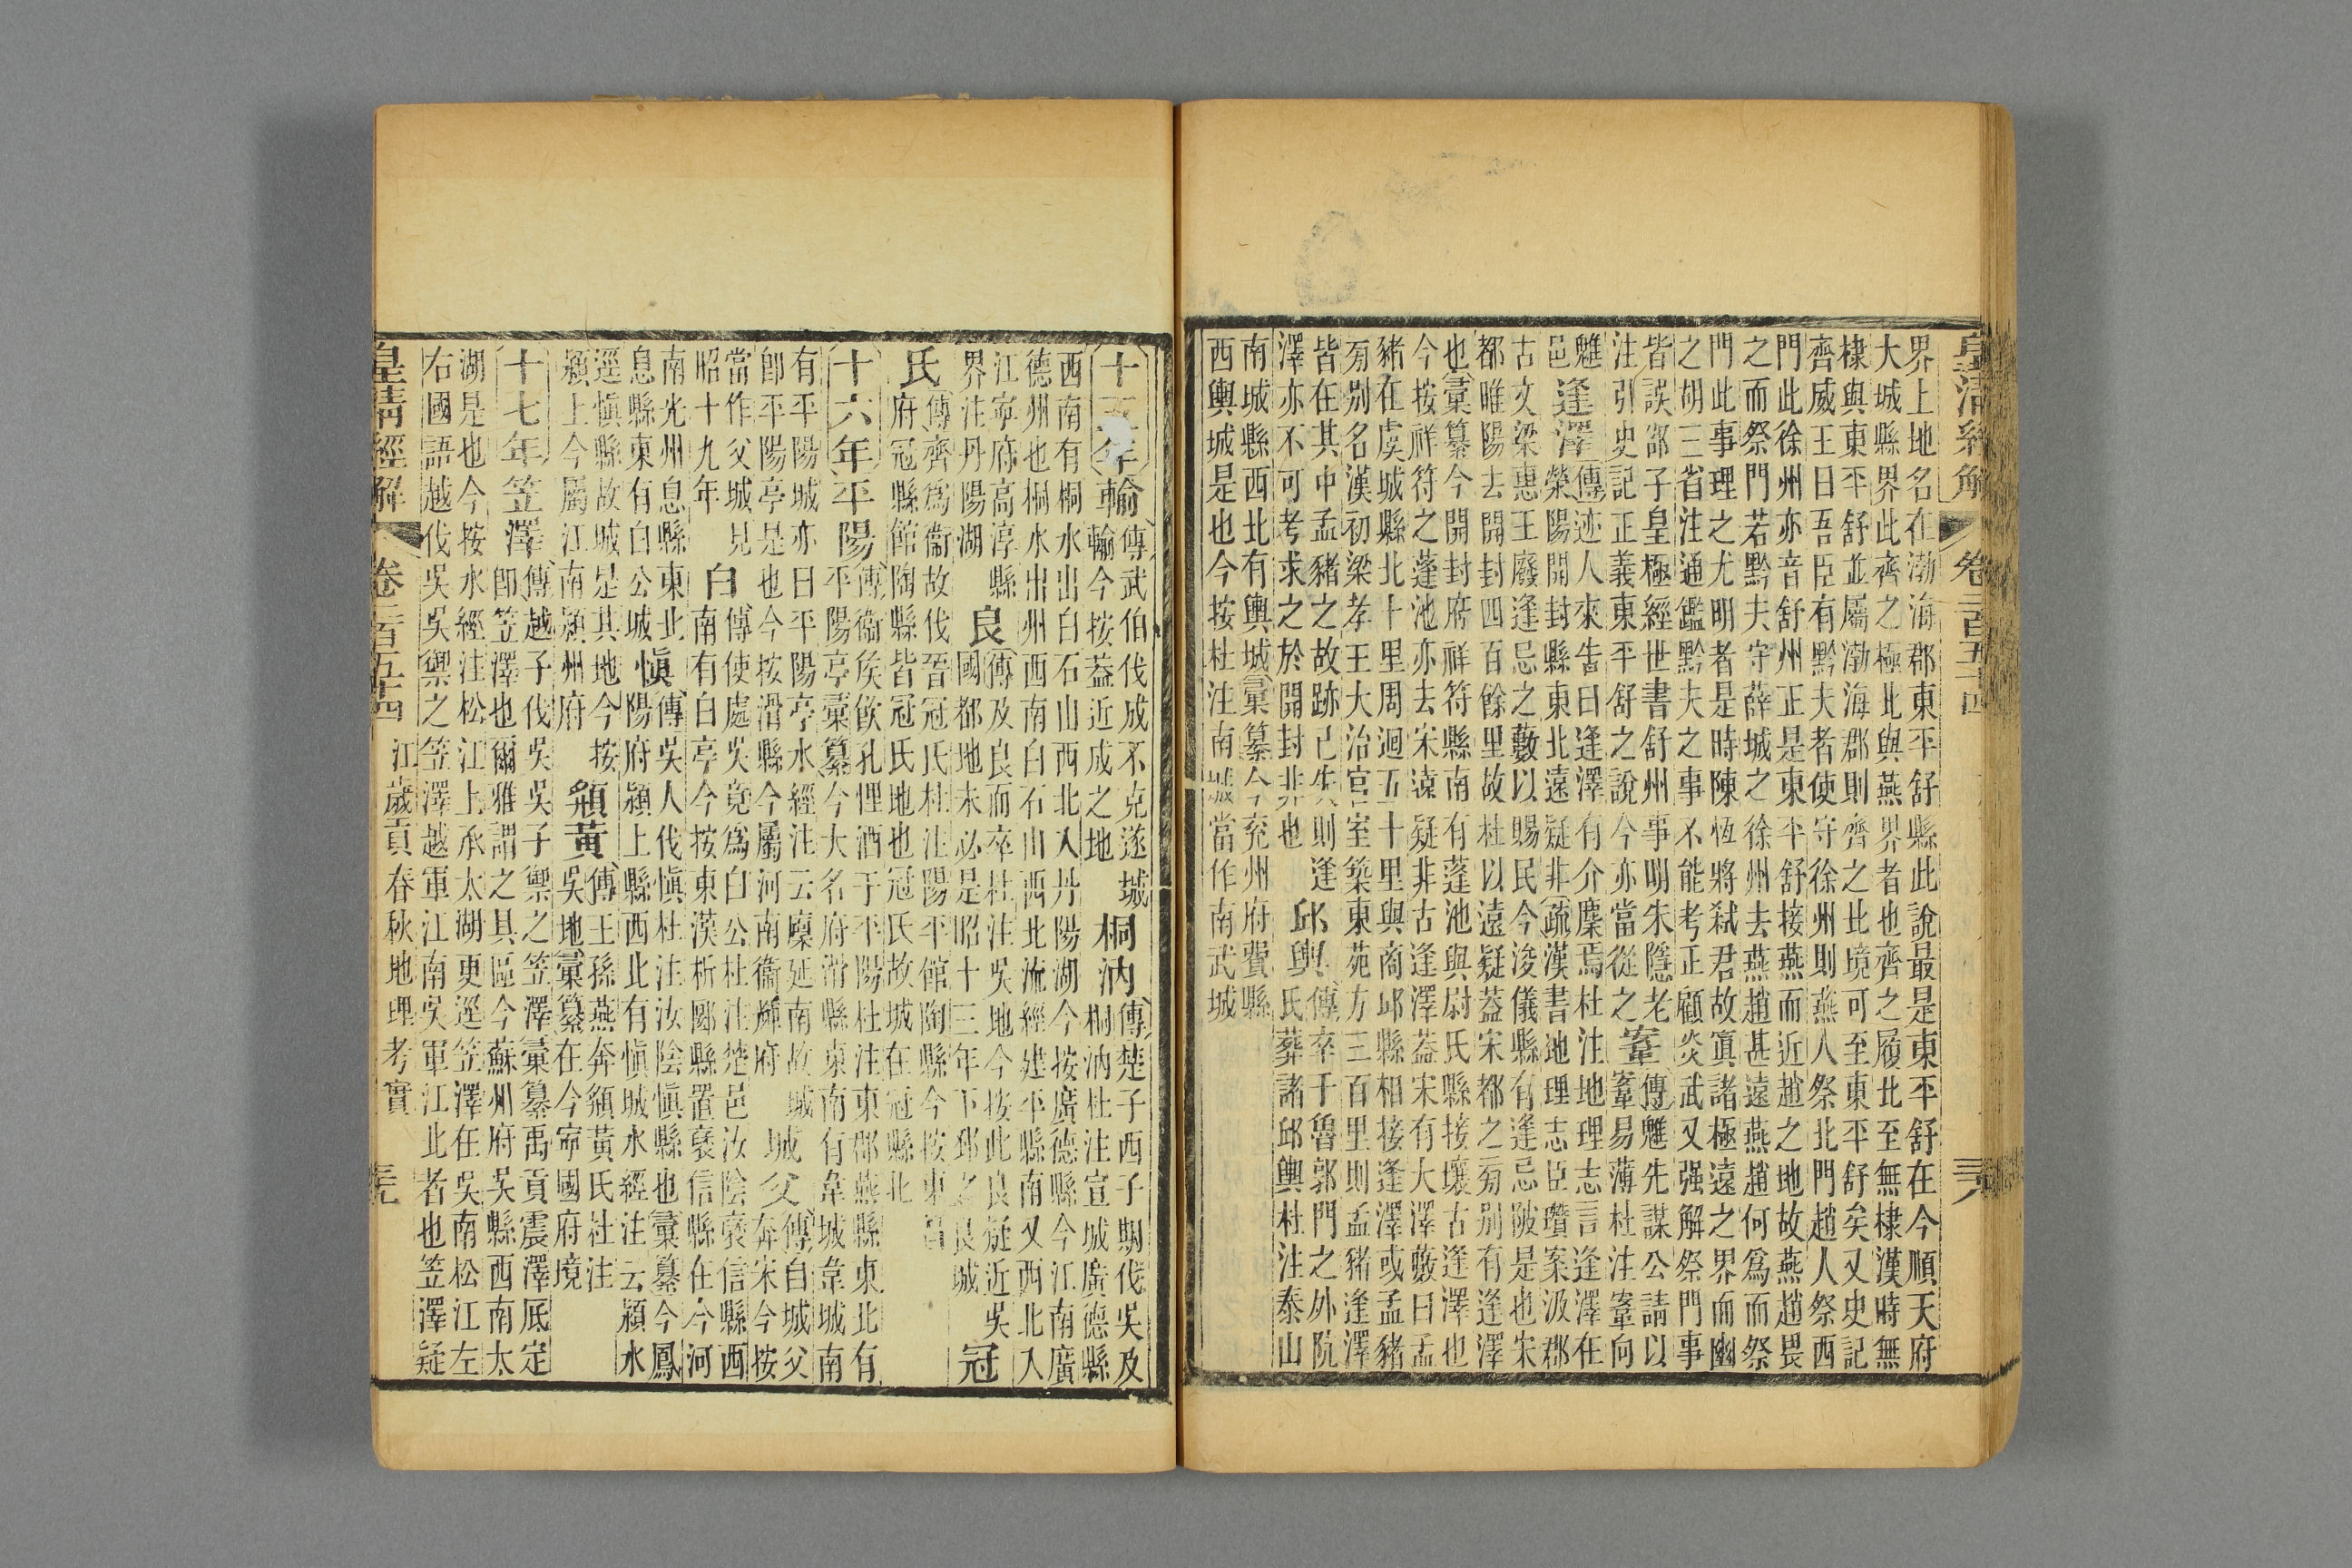 皇清經解 卷二百五十四 三八
界上地名在渤海郡東平舒縣此說最是東平舒在今順天府
大城縣界此齊之極北與燕界者也齊之履北至無棣漢時無
棣與東平舒並屬渤海郡則齊之北境可至東平舒矣又史記
齊威王曰吾臣有黔夫者使守徐州則燕人祭北門趙人祭西
門此徐州亦音舒州正是東平舒接燕而近趙之地故燕趙畏
之而祭門若黔夫守薛城之徐州去燕趙甚遠燕趙何為而祭
門此事理之尤明者是時陳恆將弒君故寘諸極遠之界而幽
之胡三省注通鑑黔夫之事不能考正顧炎武又强解祭門事
皆誤邵子皇極經世書舒州事明朱隱老
注引史記正義東平舒之說今亦當從之
鞌
傳魋先謀公請以
鞌易薄杜注鞌向
魋
邑
逢澤
傳迹人來告曰逢澤有介麇焉杜注地理志言逢澤在
滎陽開封縣東北遠疑非疏漢書地理志臣瓚案汲郡
古文梁惠王廢逢忌之藪以賜民今浚儀縣有逢忌陂是也宋
都睢陽去開封四百餘里故杜以遠疑蓋宋都之旁別有逢澤
也彙纂今開封府祥符縣南有蓬池與尉氏縣接壤古逢澤也
今按祥符之蓬池亦去宋遠疑非古逢澤蓋宋有大澤藪曰孟
豬在虞城縣北十里周迴五十里與商邱縣相接逢澤或孟豬
旁別名漢初梁孝王大治宮室築東苑方三百里則孟豬逢澤
皆在其中孟豬之故跡已失則逢
澤亦不可考求之於開封非也
邱輿
傳卒于魯郭門之外阬
氏葬諸邱輿杜注泰山
南城縣西北有輿城彙纂今兗州府費縣
西輿城是也今按杜注南城當作南武城
十五年 輸
傳武伯伐成不克遂城
輸今按蓋近成之地
桐汭
傳楚子西子期伐吳及
桐汭杜注宣城廣德縣
西南有桐水出白石山西北入丹陽湖今按廣德縣今江南廣
德州也桐水出州西南白石山西北流經建平縣南又西北入
江寧府高淳縣
界注丹陽湖
良
傳及良而卒杜注吳地今按此良疑近吳
國都地未必是昭十三年下邳之良城
冠
氏
傳齊為衞故伐晉冠氏杜注陽平館陶縣今按東昌
府冠縣館陶縣皆冠氏地也冠氏故城在冠縣北
十六年 平陽
傳衞侯飲孔悝酒于平陽杜注東郡燕縣東北有
平陽亭彙纂今大名府滑縣東南有韋城韋城南
有平陽城亦曰平陽亭水經注云廩延南故城
即平陽亭是也今按滑縣今屬河南衞輝府
城父
傳自城父
奔宋今按
當作父城見
昭十九年
白
傳使處吳竟為白公杜注楚邑汝陰褒信縣西
南有白亭今按東漢析郾縣置褒信縣在今河
南光州息縣東北
息縣東有白公城
慎
傳吳人伐慎杜注汝陰慎縣也彙纂今鳳
陽府潁上縣西北有慎城水經注云潁水
逕慎縣故城是其地今按
潁上今屬江南潁州府
頯黃
傳王孫燕奔頯黃氏杜注
吳地彙纂在今寧國府境
十七年 笠澤
傳越子伐吳吳子禦之笠澤彙纂禹貢震澤厎定
即笠澤也爾雅謂之具區今蘇州府吳縣西南太
湖是也今按水經注松江上承太湖更逕笠澤在吳南松江左
右國語越伐吳吳禦之笠澤越軍江南吳軍江北者也笠澤疑
皇清經解 卷二百五十四 江歲貢春秋地理考實 三九